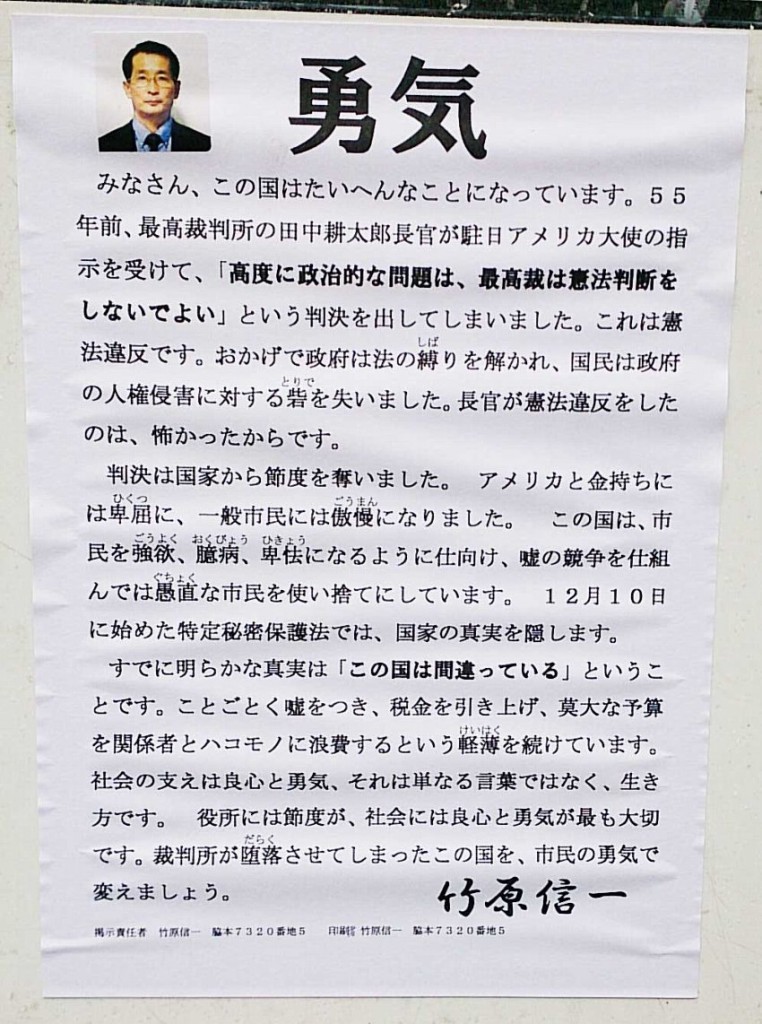 勇気
みなさん、この国はたいへんなことになっています。５５
年前、最高裁判所の田中耕太郎長官が駐日アメリカ大使の指
示を受けて、「高度に政治的な問題は、最高裁は憲法判断を
しないでよい」という判決を出してしまいました。これは憲
しば
法違反です。おかげで政府は法の縛りを解かれ、国民は政府
とりで
の人権侵害に対する砦を失いました。長官が憲法違反をした
のは、怖かったからです。
判決は国家から節度を奪いました。　アメリカと金持ちに
ひくつ　ごうまん
は卑屈に、一般市民には傲慢になりました。　この国は、市
ごうよく　おくびょう　ひきょう
民を強欲、臆病、卑怯になるように仕向け、嘘の競争を仕組
ぐちょく
んでは愚直な市民を使い捨てにしています。　１２月１０日
に始めた特定秘密保護法では、国家の真実を隠します。
すでに明らかな真実は「この国は間違っている」というこ
とです。ことごとく嘘をつき、税金を引き上げ、莫大な予算
けいはく
を関係者とハコモノに浪費するという軽薄を続けています。
社会の支えは良心と勇気、それは単なる言葉ではなく、生き
方です。　役所には節度が、社会には良心と勇気が最も大切
だらく
です。裁判所が堕落させてしまったこの国を、市民の勇気で
変えましょう。
竹原信一
掲示責任者　竹原信一　脇本７３２０番地５　印刷者 竹原信一　脇本７３２０番地５